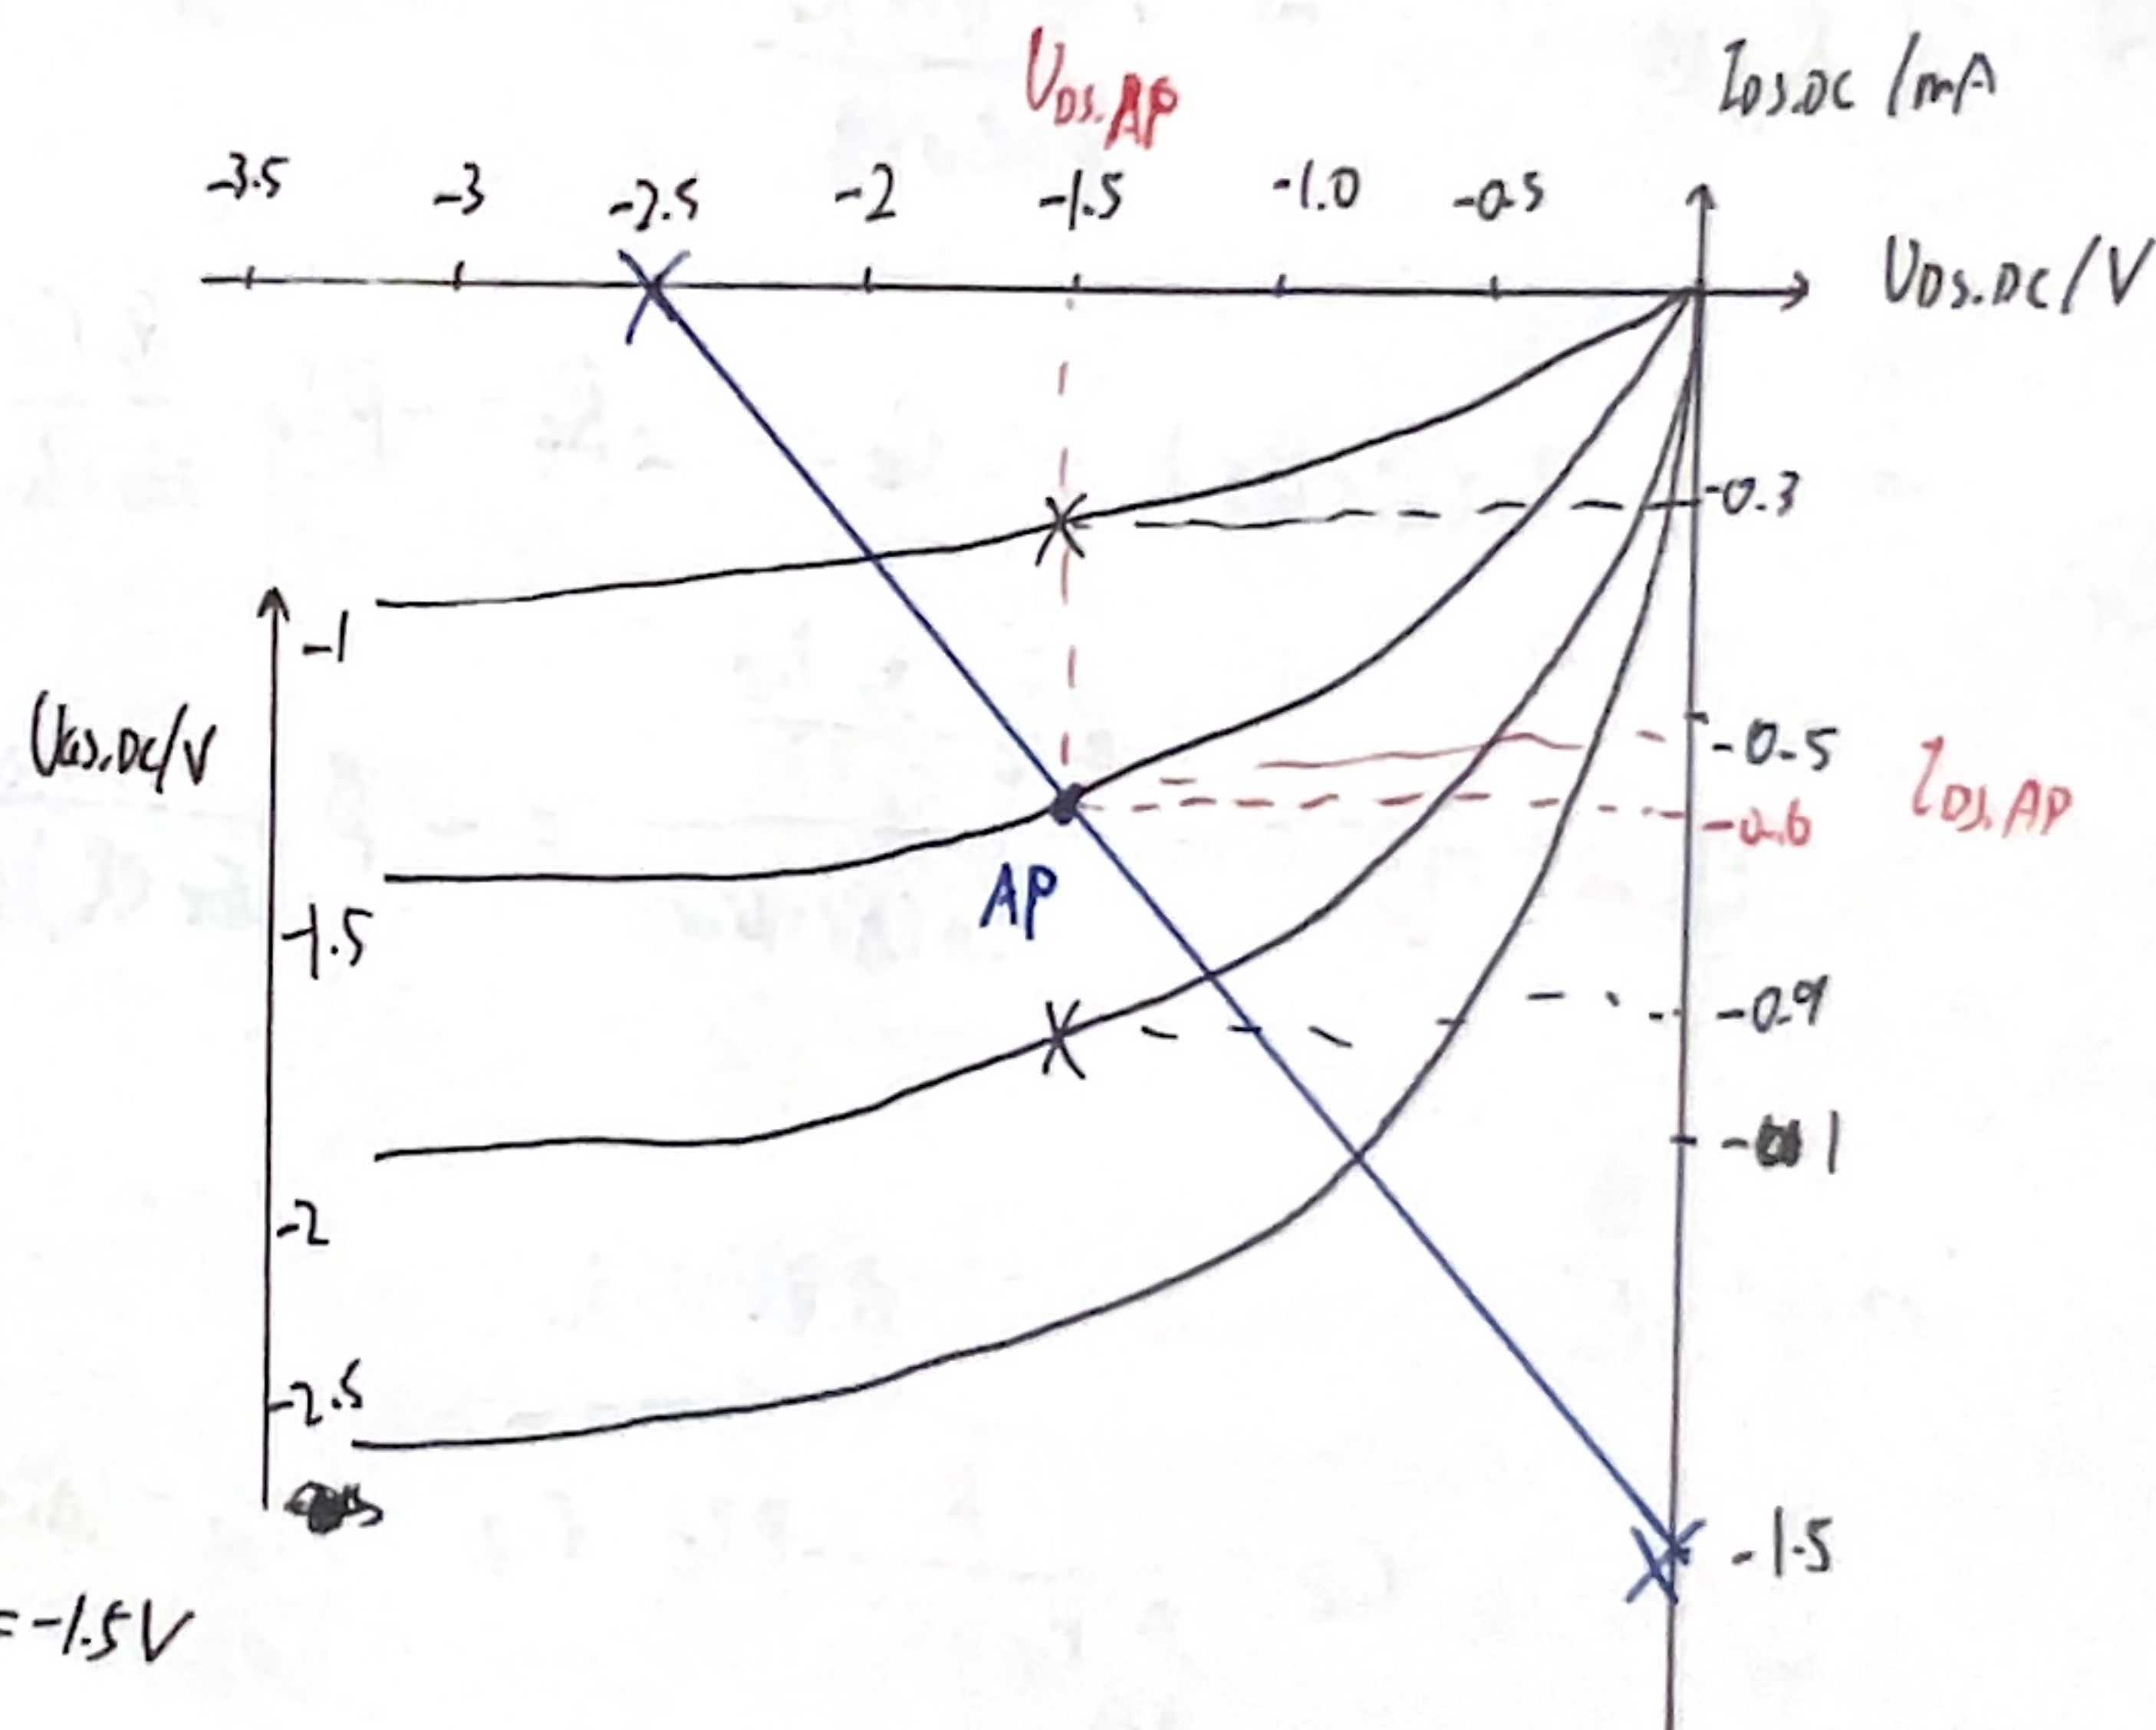 U_DS.AP
I_DS.DC /mA
-3.5 -3 -2.5 -2 -1.5 -1.0 -0.5
U_DS.DC/V
-0.3
-1
U_GS.DC/V
-0.5
-0.6
I_DS.AP
AP
-1.5
-0.9
-1
-2
-2.5
-1.5
=-1.5V